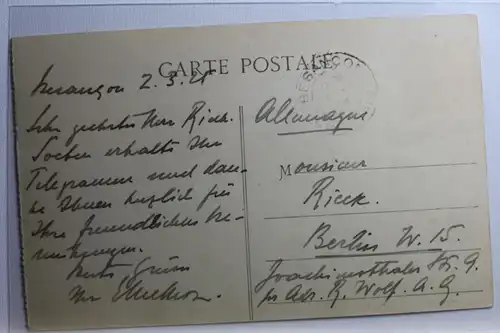 CARTE POSTALE
BESANCON
Besançon 2.3.25
Sehr geehrter Herr Rieck.
Soeben erhalte Ihr
Telegramm und dan-
ke Ihnen herzlich für
Ihre freundlichen Be-
mühungen.
Beste Grüsse
Ihr
Allemagne
Monsieur
Rieck.
Berlin W. 15.
Joachimsthaler Str. 9.
per Adr. R. Wolf. A. G.